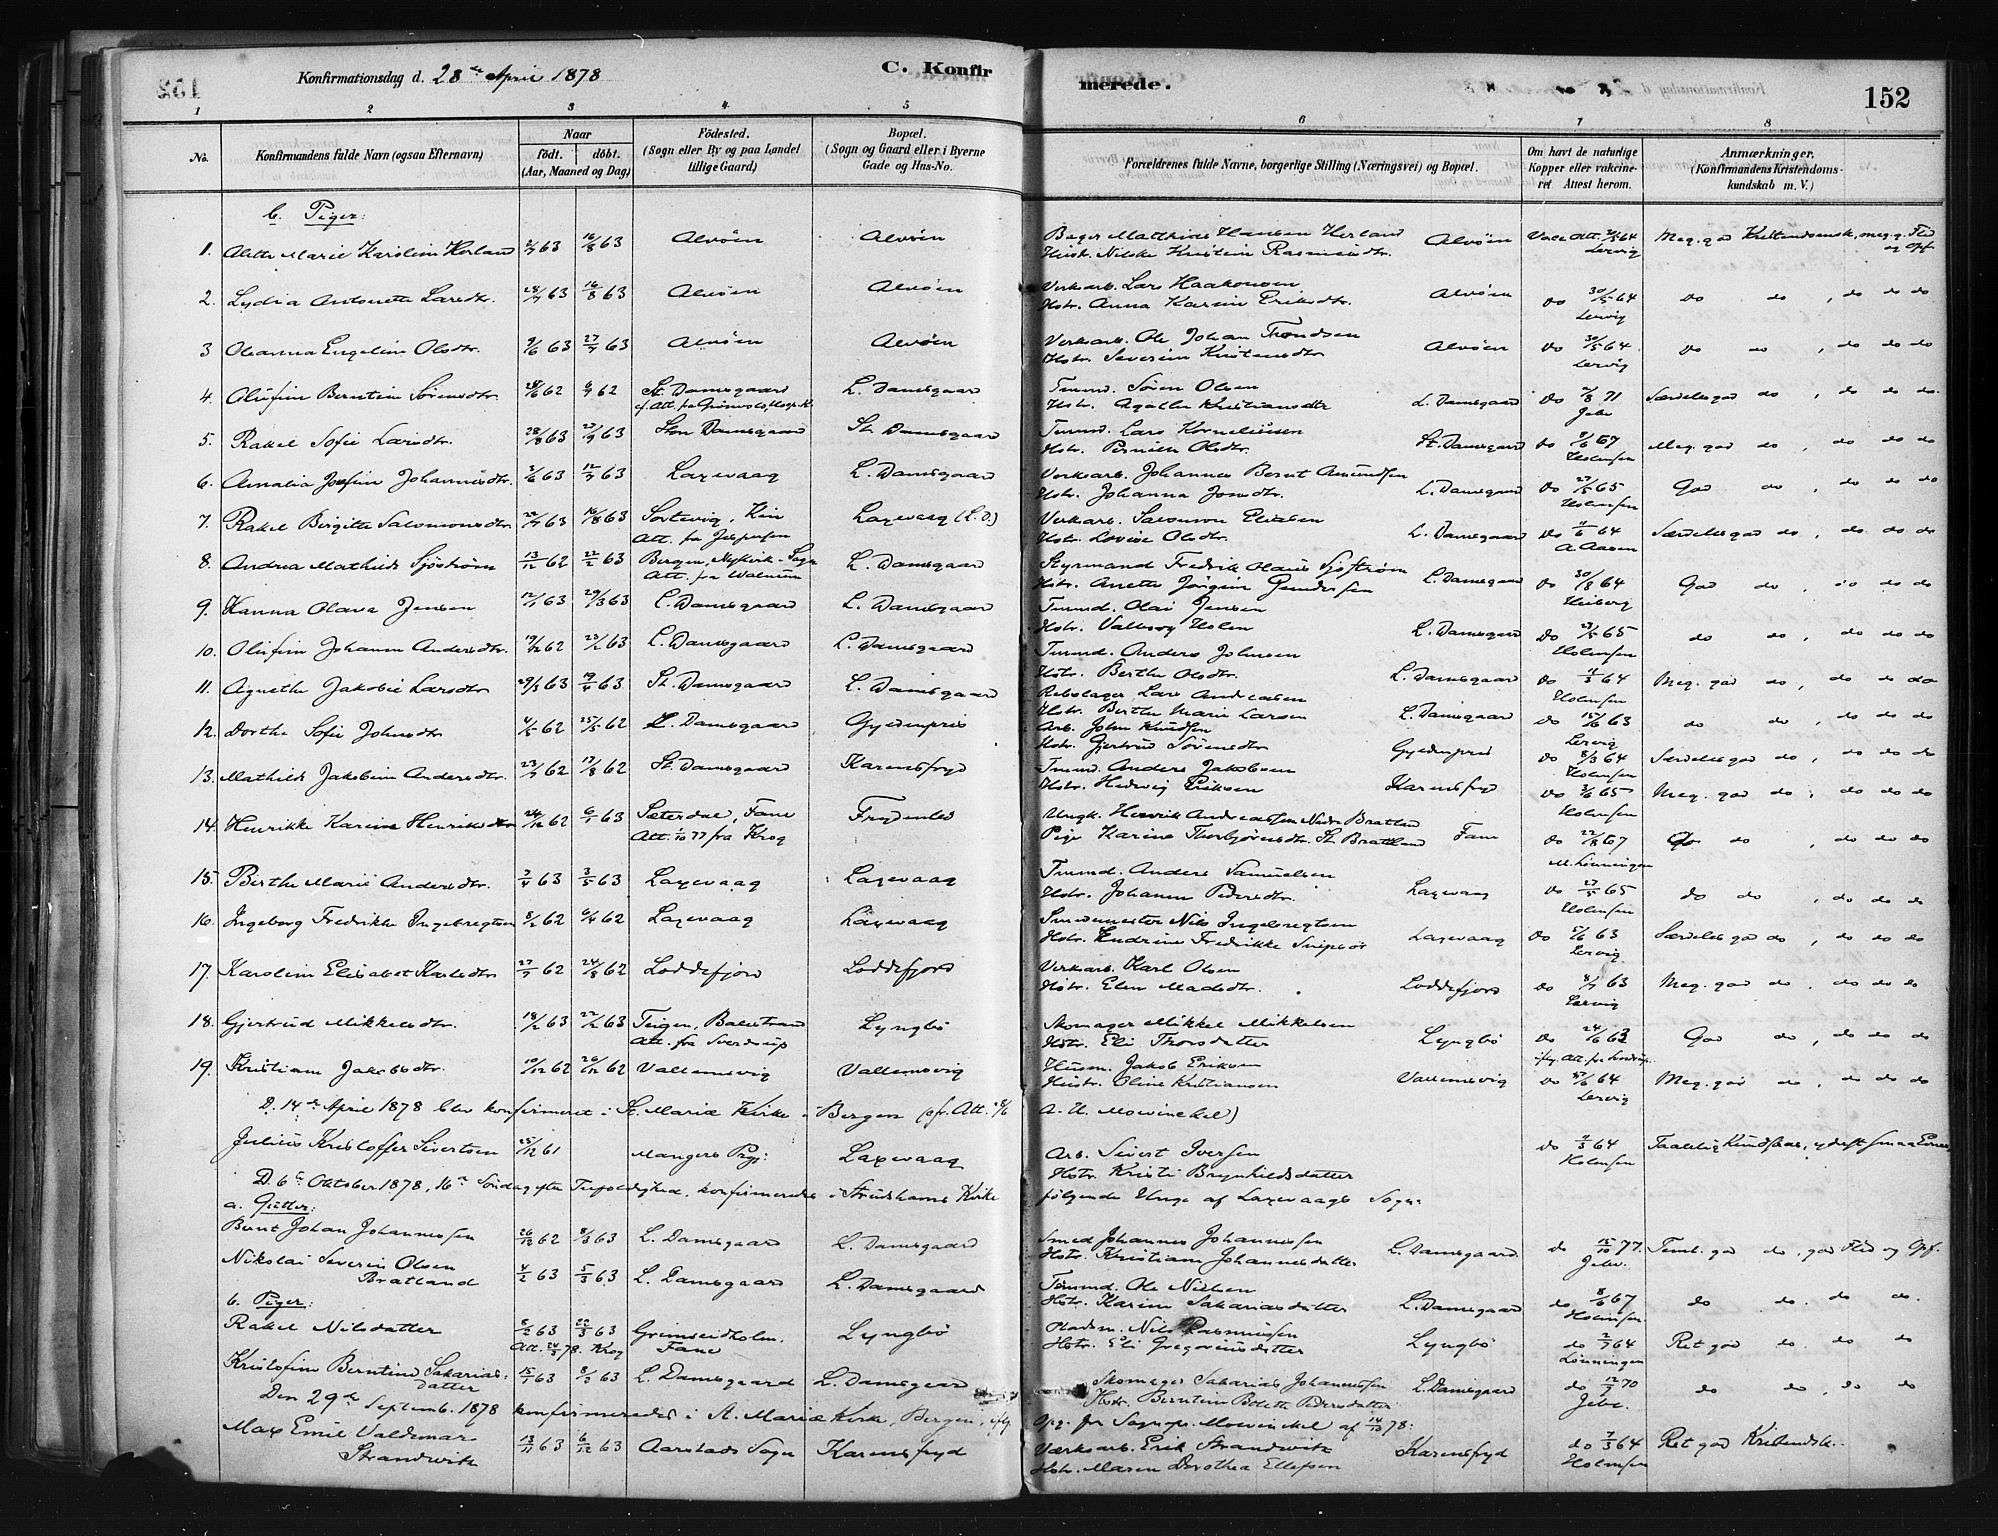 Konfirmationsdag d. 28de April 1878
C. Konfirmerede.
152
1 2 3 4 5 6 7 8
No.
Konfirmandens fulde Navn (ogsaa Efternavn)
Naar
födt. döbt.
(Aar, Maaned og Dag)
Födested.
(Sogn eller By og paa Landet tillige Gaard)
Bopæl.
(Sogn og Gaard eller i Byerne Gade og Hus-No.
Forældrenes fulde Navne, borgerlige Stilling (Næringsvei) og Bopæl.
Om havt de naturlige Kopper eller vakcineret Attest herom.
Anmærkninger.
(Konfirmandens Kristendomskundskab m. V.)
b. Piger:
1. Alette Marie Karoline Herland 63 16/8 63 Alvöen Alvöen
Hansen Herland
Hust. Nilske Kristine Rasmusdtr. Alvöen Lervig
2. Lydia Antonette Larsdtr. 28/7 63 16/8 63 Alvöen Alvöen
Verksarb. Lars Haakonsen
Hstr. Anna Karine Eriksdtr. Alvöen do 30/5 64 Lervig do do, do do do
3 Oleanna Engeline Olsdtr. 9/6 63 27/7 63 Alvöen Alvöen
Verksarb. Ole Johan Trondsen
Hstr. Severine Alvöen do 30/5 64 Lervig do do, do do do
4. Olufine Berntine Sörensdtr. 62 62 St. Damsgaard L. Damsgaard
Tmmd. Sören Olsen
Hstr. Agathe Kristiansdtr L. Damsgaard do 71 Jebe Særdeles god do, do do do
5. Rakel Sofie Larsdtr. 28/8 63 63 Store Damsgaard St. Damsgaard
Tmmd. Lars Korneliussen
Hstr. Pernille Olsdtr. St. Damsgaard do 67 Holmsen Meg. god do, do do do
6. Amalia Josefine Johannesdtr. 63 12/7 63 Laxevaag L. Damsgaard
Verksarb. Johannes Bernt Amundsen
Hstr. Johanna Jonsdtr. L. Damsgaard do 27/5 65 Holmsen God do, do do do
7. Rakel Birgitte Salomonsdtr. 22/7 63 16/8 63 Laxevaag (L.D.)
Verksarb. Salomon
Hstr. Lovise Olsdtr. L. Damsgaard do 64 A. Aasen Særdeles god do, do do do
8. Andrea Mathilde Sjöström 13/12 62 22/2 63 Bergen, Nykirk-Sogn L. Damsgaard
Styrmand Fredrik Olaus Sjöström
Hstr. Anette Jörgine Gundersen L. Damsgaard do 30/8 64 Heiberg God do, do do do
9. Hanna Olava Jensen 12/1 63 29/3 63 L. Damsgaard L. Damsgaard
Tmmd. Olai Jensen
Hstr. Valborg Holm L. Damsgaard do 65 Holmsen do do, do do do
10. Olufine Johanne Andersdtr. 19/12 62 23/2 63 L. Damsgaard L. Damsgaard
Tmmd. Anders Johnsen
Hstr. Berthe Olsdtr. L. Damsgaard do 64 Holmsen Meg. god do, do do do
11. Agnethe Jakobie Larsdtr 29/3 63 19/4 63 St. Damsgaard L. Damsgaard
Rebslager Lars Andreassen
Hstr. Berthe Marie Larsen L. Damsgaard do 15/6 63 Lervig do do, do do do
12. Dorthe Sofie Johnsdtr 4/5 62 25/5 62 L. Damsgaard Gyldenpris
Arb. John Knudsen
Hstr. Gjertrud Sörensdtr Gyldenpris do 8/3 64 Holmsen Særdeles god do, do do do
13. Mathilde Jakobine Andersdtr. 23/7 62 17/8 62 St. Damsgaard Karensfryd
Tmmd. Anders Jakobsen
Hstr. Hedvig Eriksen Karensfryd do 65 Holmsen Meg. god do, do do do
14. Henrikke Karine Henriksdtr 24/12 62 6/1 63 Sæterdal, Fane Frydenbö
Att. 1/10 77 fra Krog
Ungk. Henrik Andreassen Nedre Bratland
Pige Karine Thorbjörnsdtr. St. Bratland Fane do 22/8 67 M. Lönningen God do, do do do
15. Berthe Marie Andersdtr. 7/4 63 3/5 63 Laxevaag Laxevaag
Tmmd. Anders Samuelsen
Hstr. Johanne Pedersdtr. Laxevaag do 27/5 65 Holmsen do do, do do do
16. Ingeborg Fredrikke Ingebregtsen 8/2 62 6/4 62 Laxevaag Laxevaag
Smedemester Nils Ingebregtsen
Hstr. Endrine Fredrikke Laxevaag do 63 Lervig Særdeles god do, do do do
17. Karoline Elisabet Karlsdtr 27/7 62 24/8 62 Loddefjord Loddefjord
Verksarb. Karl Olsen
Hstr. Elen Madsdtr. Loddefjord do 63 Lervig Meg. god do, do do do
18. Gjertrud Mikkelsdtr. 18/2 63 22/2 63 Teigen, Balestrand Lyngbö
Att. fra Sverdrup
Skomager Mikkel Mikkelsen
Hstr. Eli Thorsdatter Lyngbö do 24/6 63 God do, do do do
19. Kristiane Jakobsdtr. 10/12 62 26/12 62 Vallemsvig Vallemsvig
Husm. Jakob Eriksen
Hustr. Oline Kristiansen Vallemsvig do 64 Lervig Meg. god do, do do do
D. 14de April 1878 blev konfirmeret i St. Mariæ Kirke i Bergen (cfr. Att. 8/6 A. U. Mowinckel)
Julius Kristoffer Sivertsen 25/12 61 Mangers Prgj: Laxevaag
Arb. Sivert Iversen
Hstr. Kristi Brynhildsdatter do 64 Holmsen
D. 6te Oktober 1878, 16de Söndag efter Trefoldighed, konfirmeredes i Strudshavns Kirke fölgende Unge af Laxevaags Sogn:
a. Gutter:
Bernt Johan Johannessen 26/12 62 8/3 63 L. Damsgaard L. Damsgaard
Smed Johannes Johannessen
Hstr. Kristiane Johannesdatter L. Damsgaard do 15/10 77. Jebe. Teml. god do, god Flid og Opf.
Nikolai Severin Olsen Bratland 4/2 63 5/3 63 L. Damsgaard L. Damsgaard
Tmmd. Ole Nielsen
Hstr. Karine Sakariasdatter L. Damsgaard do 8/6 67 Holmsen do do. do do.
b. Piger:
Rakel Nilsdatter 8/2 63 22/3 63 Grimseidholm. Fane Lyngbö
Nils Rasmussen
Hstr. Eli Gregoriusdatter Lyngbö do 64 Lönningen Ret god do. do do
Kristofine Berntine Sakariasdatter 15/1 63 8/3 63 L. Damsgaard L. Damsgaard
Skomager Sakarias Johannessen
Hstr. Berntine Bolette Pedersdatter L. Damsgaard do 12/7 70 Jebe. do do, do do
Den 29de Septemb. 1878 konfirmeredes i St. Mariæ Kirke, Bergen, ifg. Opg. fra Sognepr. Mowinckel af 14/10 78:
Max Emil Valdemar Strandwik 13/11 63 6/12 63 Aarstads Sogn Karensfryd
Værksarb. Erik Strandwik
Hstr. Maren Dorothea Ellefsen Karensfryd do 7/3 64 Holmsen Ret god Kristendsk.